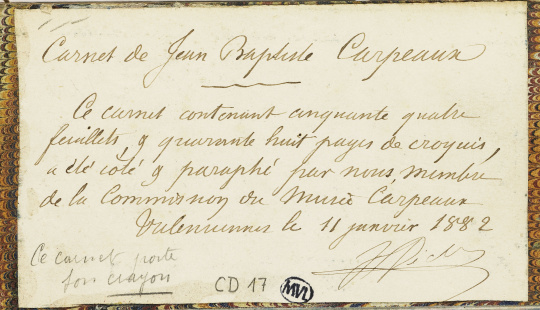 Carnet de Jean Baptiste Carpeaux
Ce carnet contenant cinquante quatre
feuillets, & quarante huit pages de croquis,
a été côté & paraphé par nous, membre
de la Commission du Musée Carpeaux
Valenciennes le 11 janvier 1882
Ce carnet porte
son crayon
CD 17